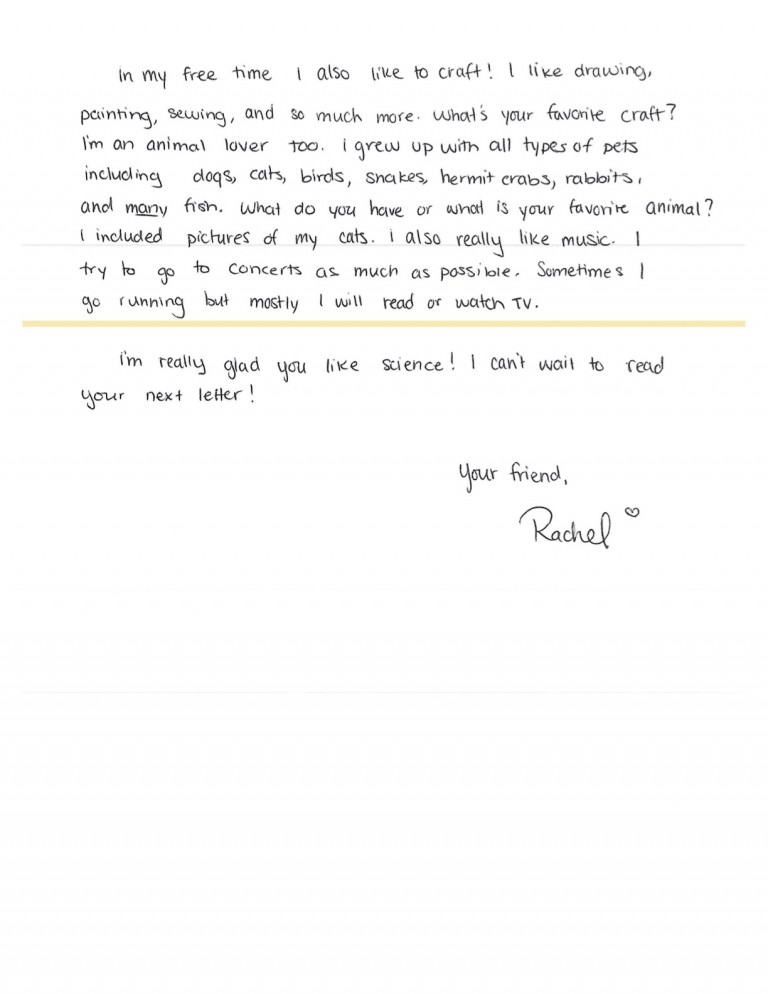 In my free time I also like to craft! I like drawing,
painting, sewing, and so much more. What's your favorite craft?
I'm an animal lover too. I grew up with all types of pets
including dogs, cats, birds, snakes, hermit crabs, rabbits,
and many fish. What do you have or what is your favorite animal?
I included pictures of my cats. I also really like music. I
try to go to concerts as much as possible. Sometimes I
go running but mostly I will read or watch TV.
I'm really glad you like science! I can't wait to read
your next letter!
Your friend,
Rachel ♡